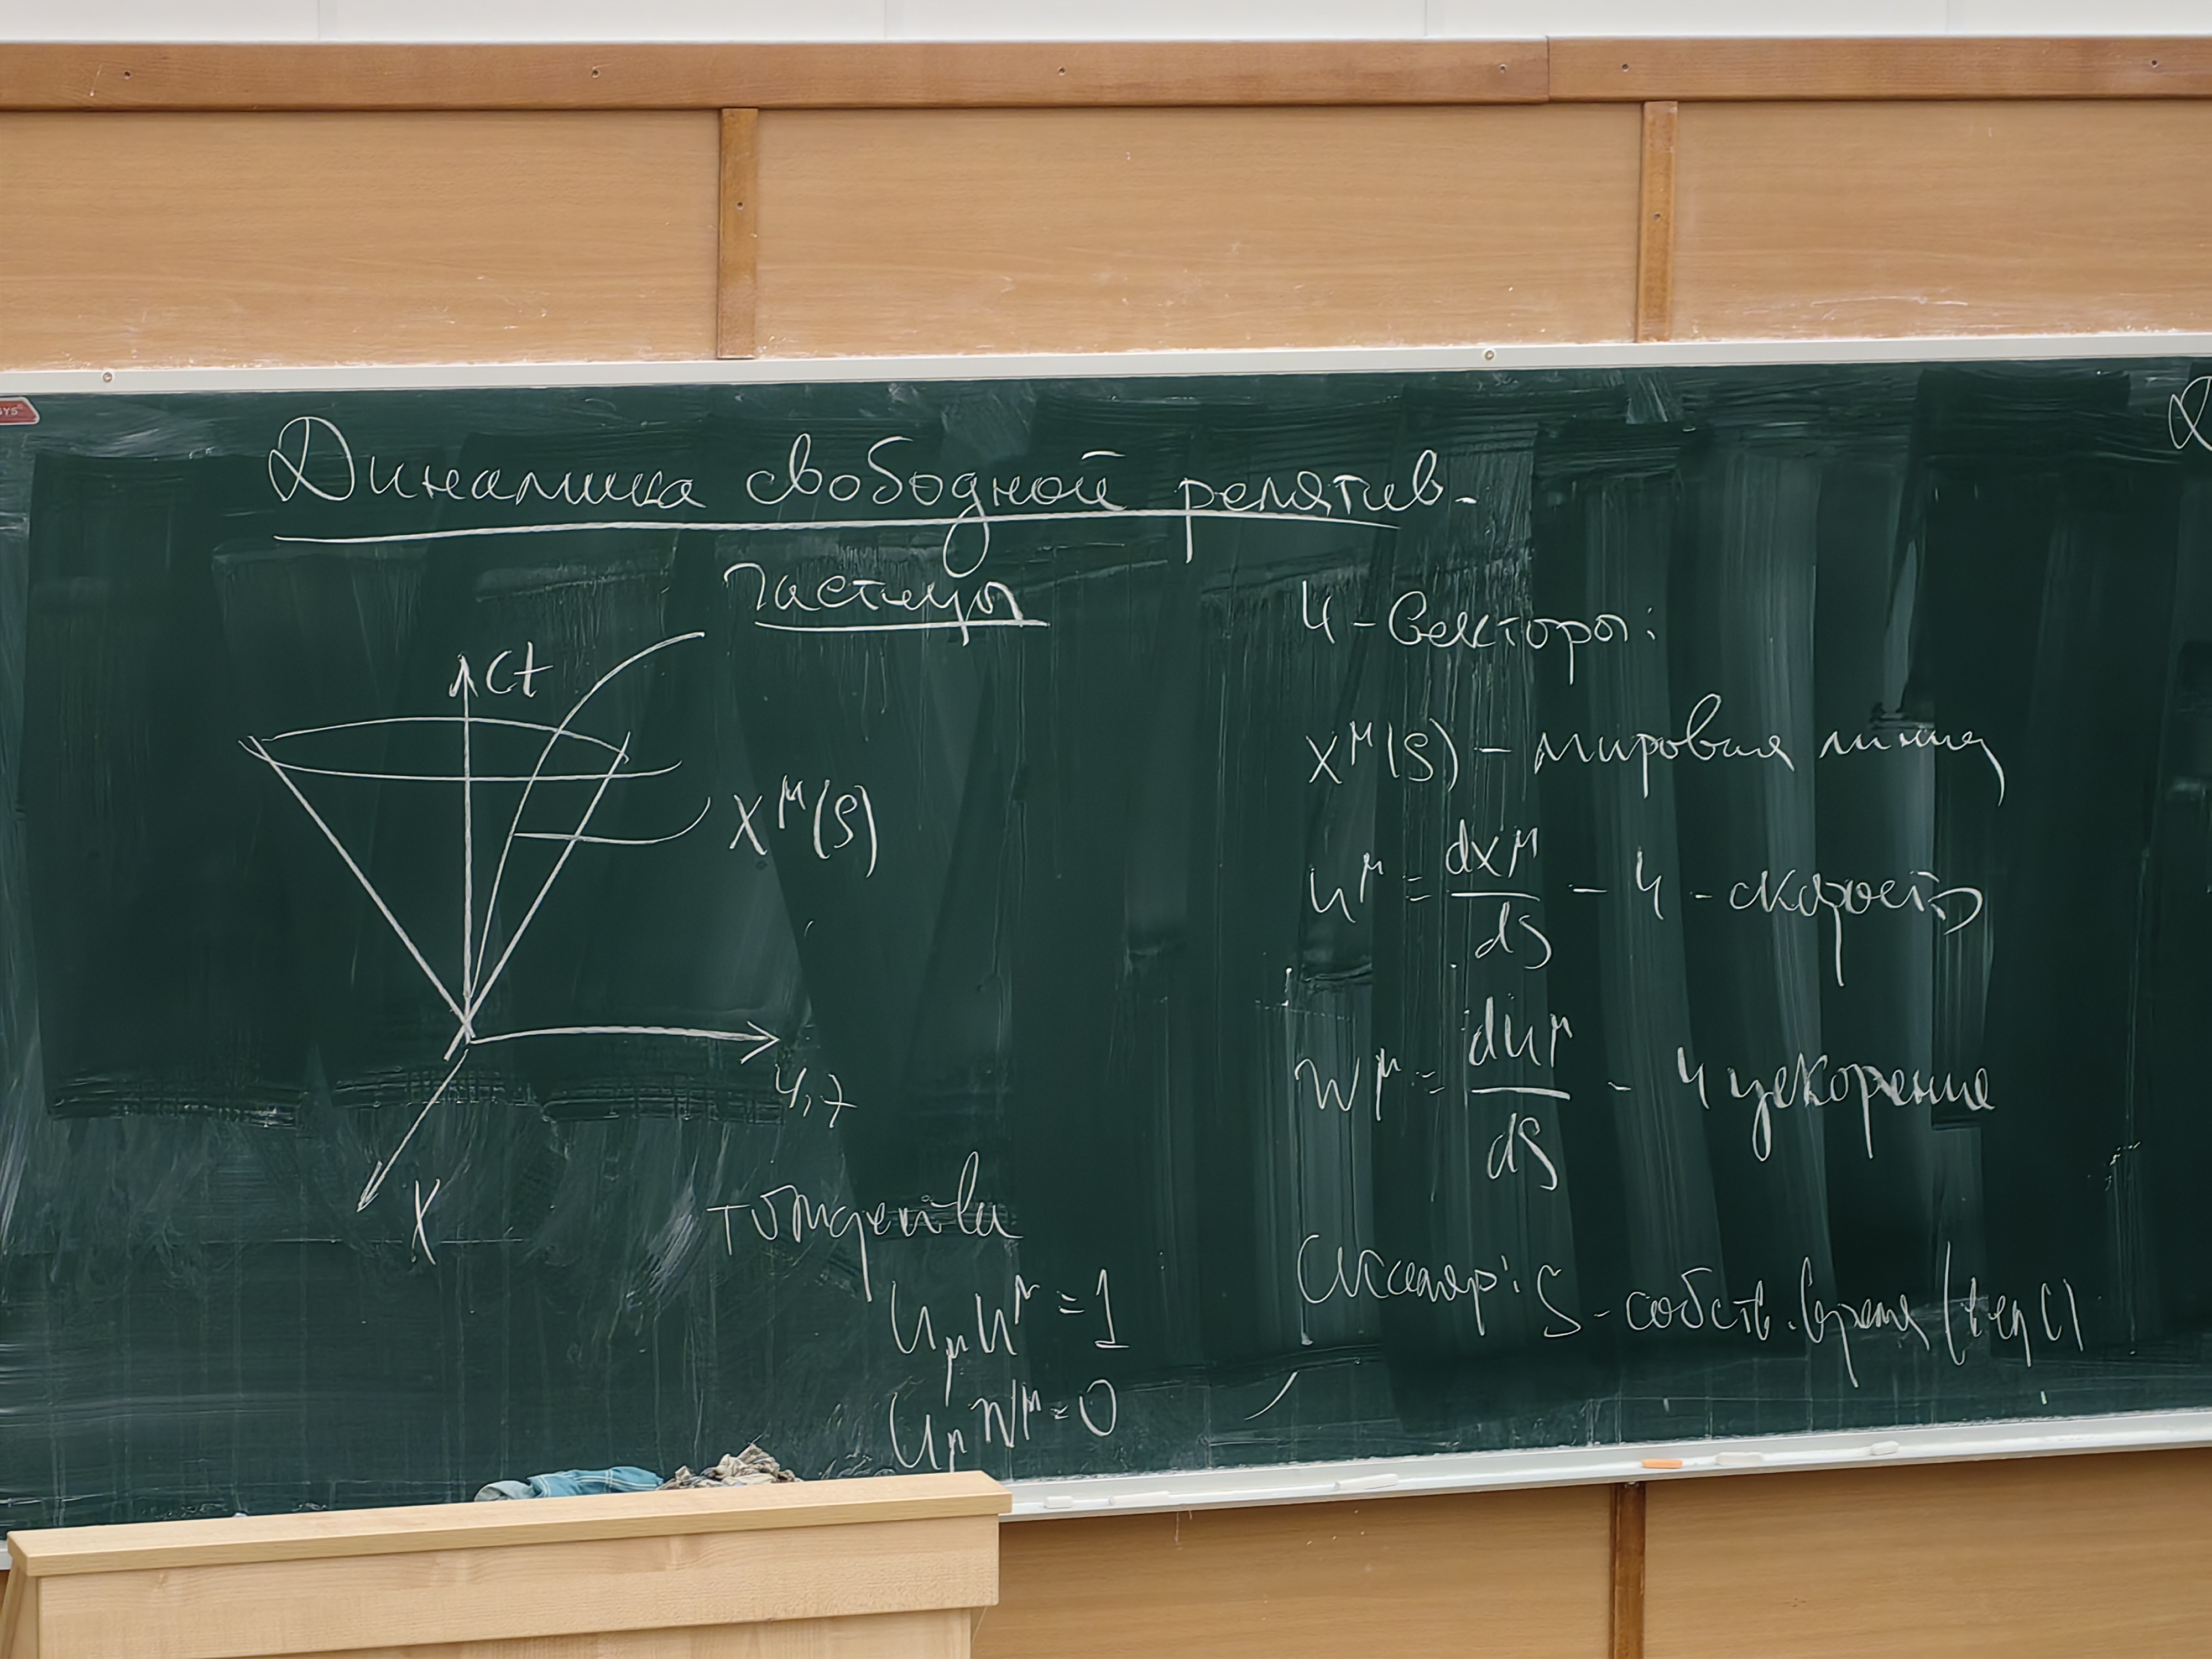 Динамика свободной релятив-
частицы
ct
x^μ(s)
y, z
x
тождества
u_μ u^μ = 1
u_μ w^μ = 0
4-векторы:
x^μ(s) – мировая линия
u^μ = dx^μ/ds – 4-скорость
w^μ = du^μ/ds – 4 ускорение
Скаляр: s - собств. время (в ед c)